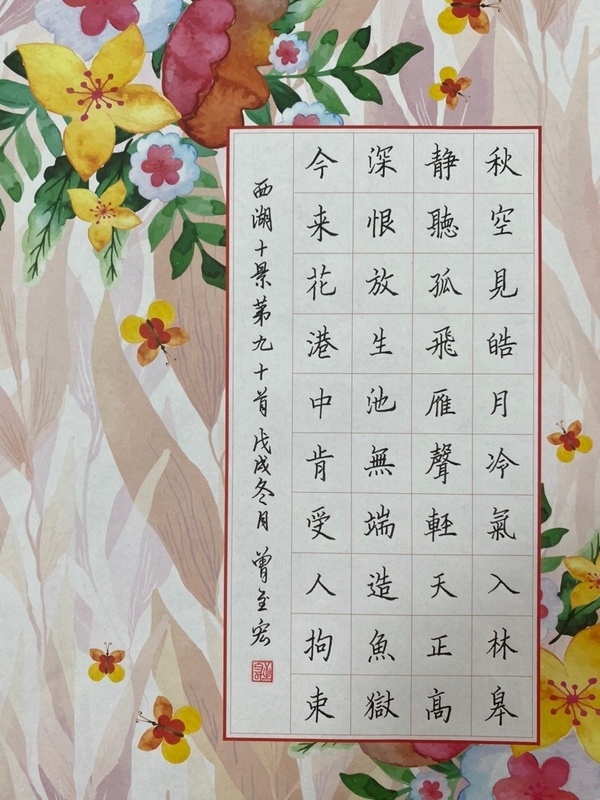 秋空見皓月冷氣入林皋
静聽孤飛雁聲軽天正高
深恨放生池無端造魚獄
今来花港中肯受人拘束
西湖十景第九十首 戊戌冬月 曾至宏